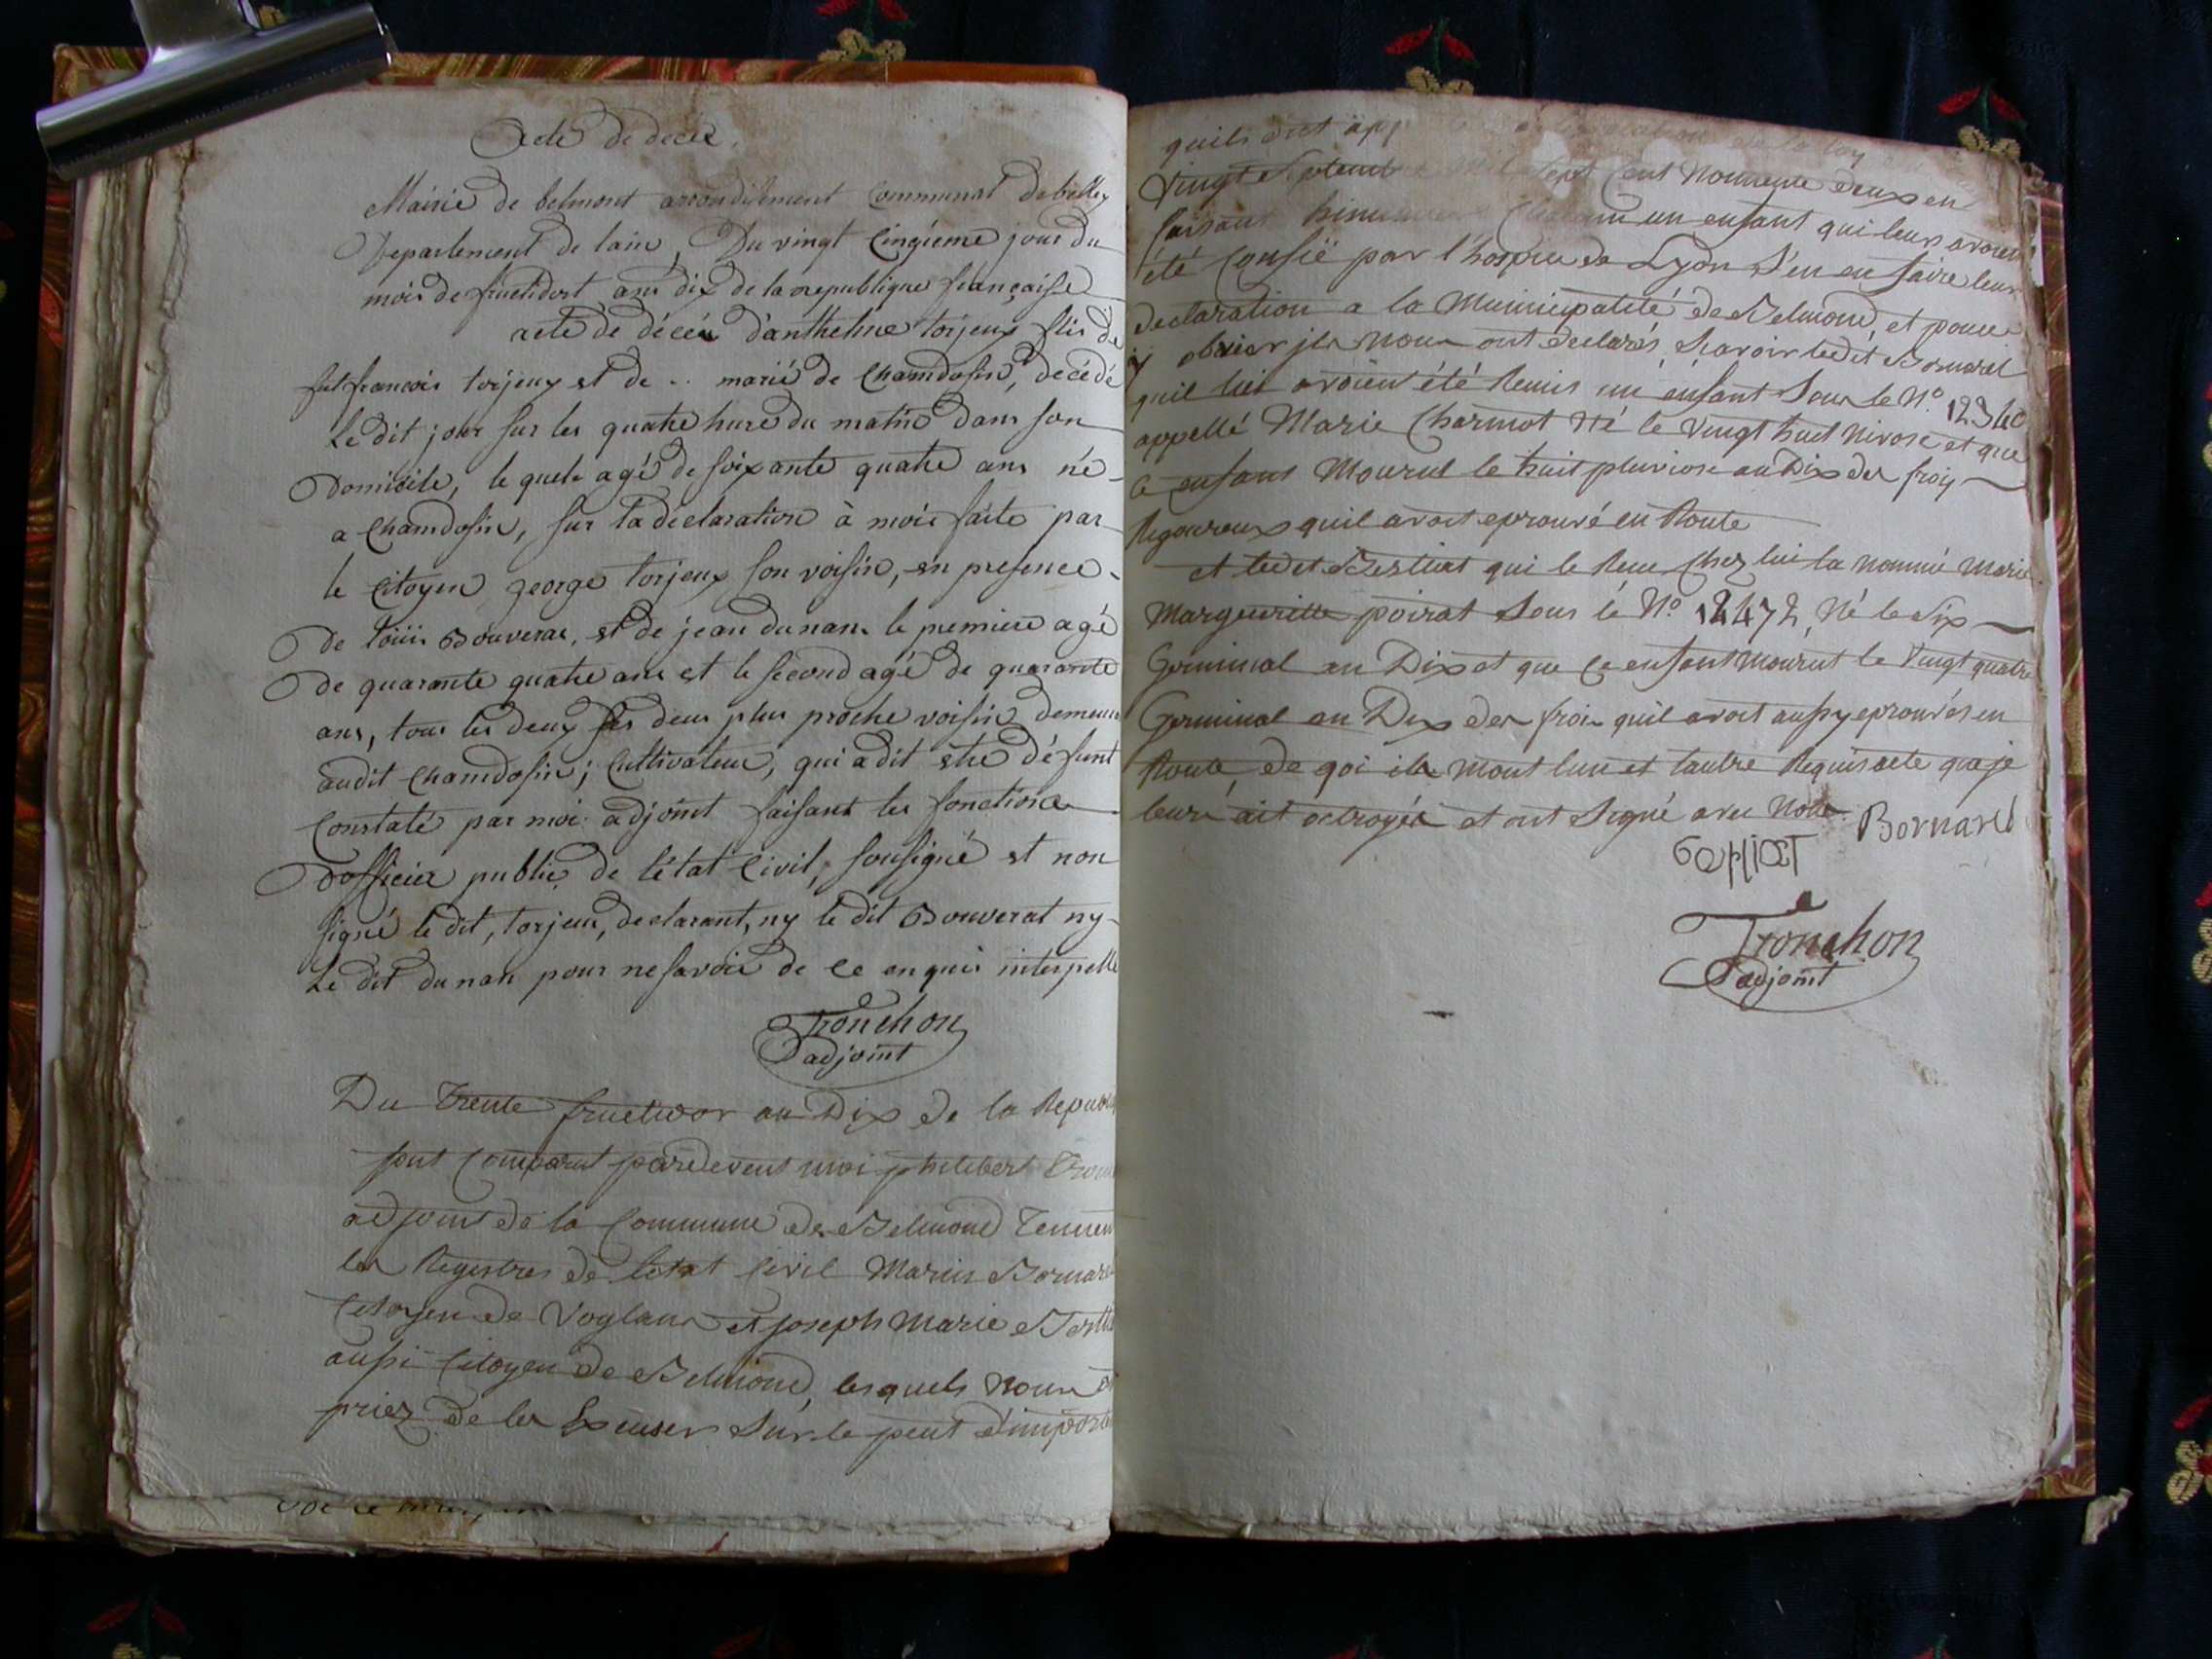 Acte de décès.
Mairie de belmont arrondissement Communal de belley
Departement de lain, Du vingt cinqieme jour du
mois de fructidort ans dix de la republique française
acte de décès d'anthelme torjeux fils de
fut francois torjeux et de .. marié de Chamdosin, decédé
Le dit jour sur les quatre hure du matin Dans son
Domicile, le quele agé de soixante quatre ans né
a Chamdosin, sur la déclaration à moi faite par
le Citoyen george torjeux son voisin, en presence
De Louis Bouverat, et de jean dunan le premiere agé
De quarante quatre ans et le second agé de quarante
ans, tous les deux ses deux plus proche voisin demeur
audit Chamdosin; Cultivateur, qui a dit etre défunt
Constaté par moi adjoint faisant les fonctions
Dofficier public de l'état Civil, sousigné et non
signé le dit, torjeux, declarant, ny le dit Bouverat ny
Le dit dunan pour ne savoir de ce enquis interpellé
Tronchon
adjoint
Du Trente fructidor an Dix de la Republi
sont Comparut pardevent moi philibert Tron
adjoint de la Commune de Belmond Tenen
les Registres de letat Civil Marin Bornard
Citoyen de Voglans et joseph Marie Berth
aussi Citoyen de Belmond, lesquels nous
priez de les Excuser sur le peut d'import
quils ont de la loy
Vingt Septembre mil sept Cent Nonnente deux en
faisant Chacun un enfant qui leurs avoien
été Confié par l'hospice de Lyon S'en en faire leur
declaration a la Municipalité de Belmond, et pour
y obvier jls nous ont declarés, Scavoir ledit Bornard
quil lui avoient été Remis un enfant Sous le N.º 12340
appellé Marie Charmot Né le Vingt huit Nivose et que
Ce enfant Mourut le huit pluviose an Dix des froiy
Regoureux quil avoit eprouvé en Route
et ledit Berthiat qui le Reçu Chez lui la nommé Marie
Margueritte poirat Sous le N.º 12472, Né le Six
Germinal an Dix et que Ce enfant Mourut le Vingt quatre
Germinal an Dix des froi quil avoit aussy eprouvés en
Route, de qoi ils Mont lun et lautre Requis acte que je
leurs ait octroyés et ont Signé avec Nous. Bornard
Tronchon
adjoint